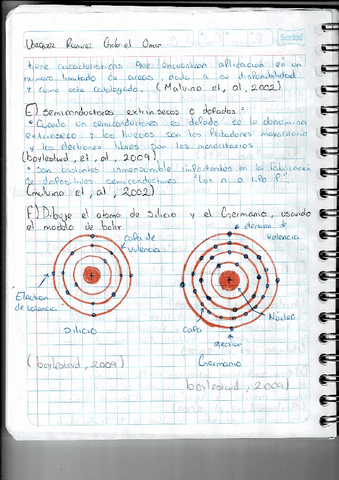 Vazquez Ramirez Gabriel Omar
Scribe
tiene características que encuentran aplicación en un
número limitado de areas, dada a su disponibilidad
y como este catalogado. (Malvino et, al, 2002)
E) semiconductores extrinsecos o dopados:
• Cuando un semiconductores es dopado se lo denomina
extrinseco y los huecos son los Portadores mayoritario
y los electrones libres por los minoritarios
(boylestard, et, al, 2009)
• Son bastantes importantes en la fabricación
de dispositivos semiconductores "tipo n o tipo P"
(malvino et, al, 2002)
F) Dibuje el atomo de Silicio y el Germanio, usando
el modelo de bohr
capa de
valencia
electron de
valencia
Electron
de valencia
Silicio
capa
Nucleo
electron
(boylestard, 2009)
Germanio
boylestard, 2009)